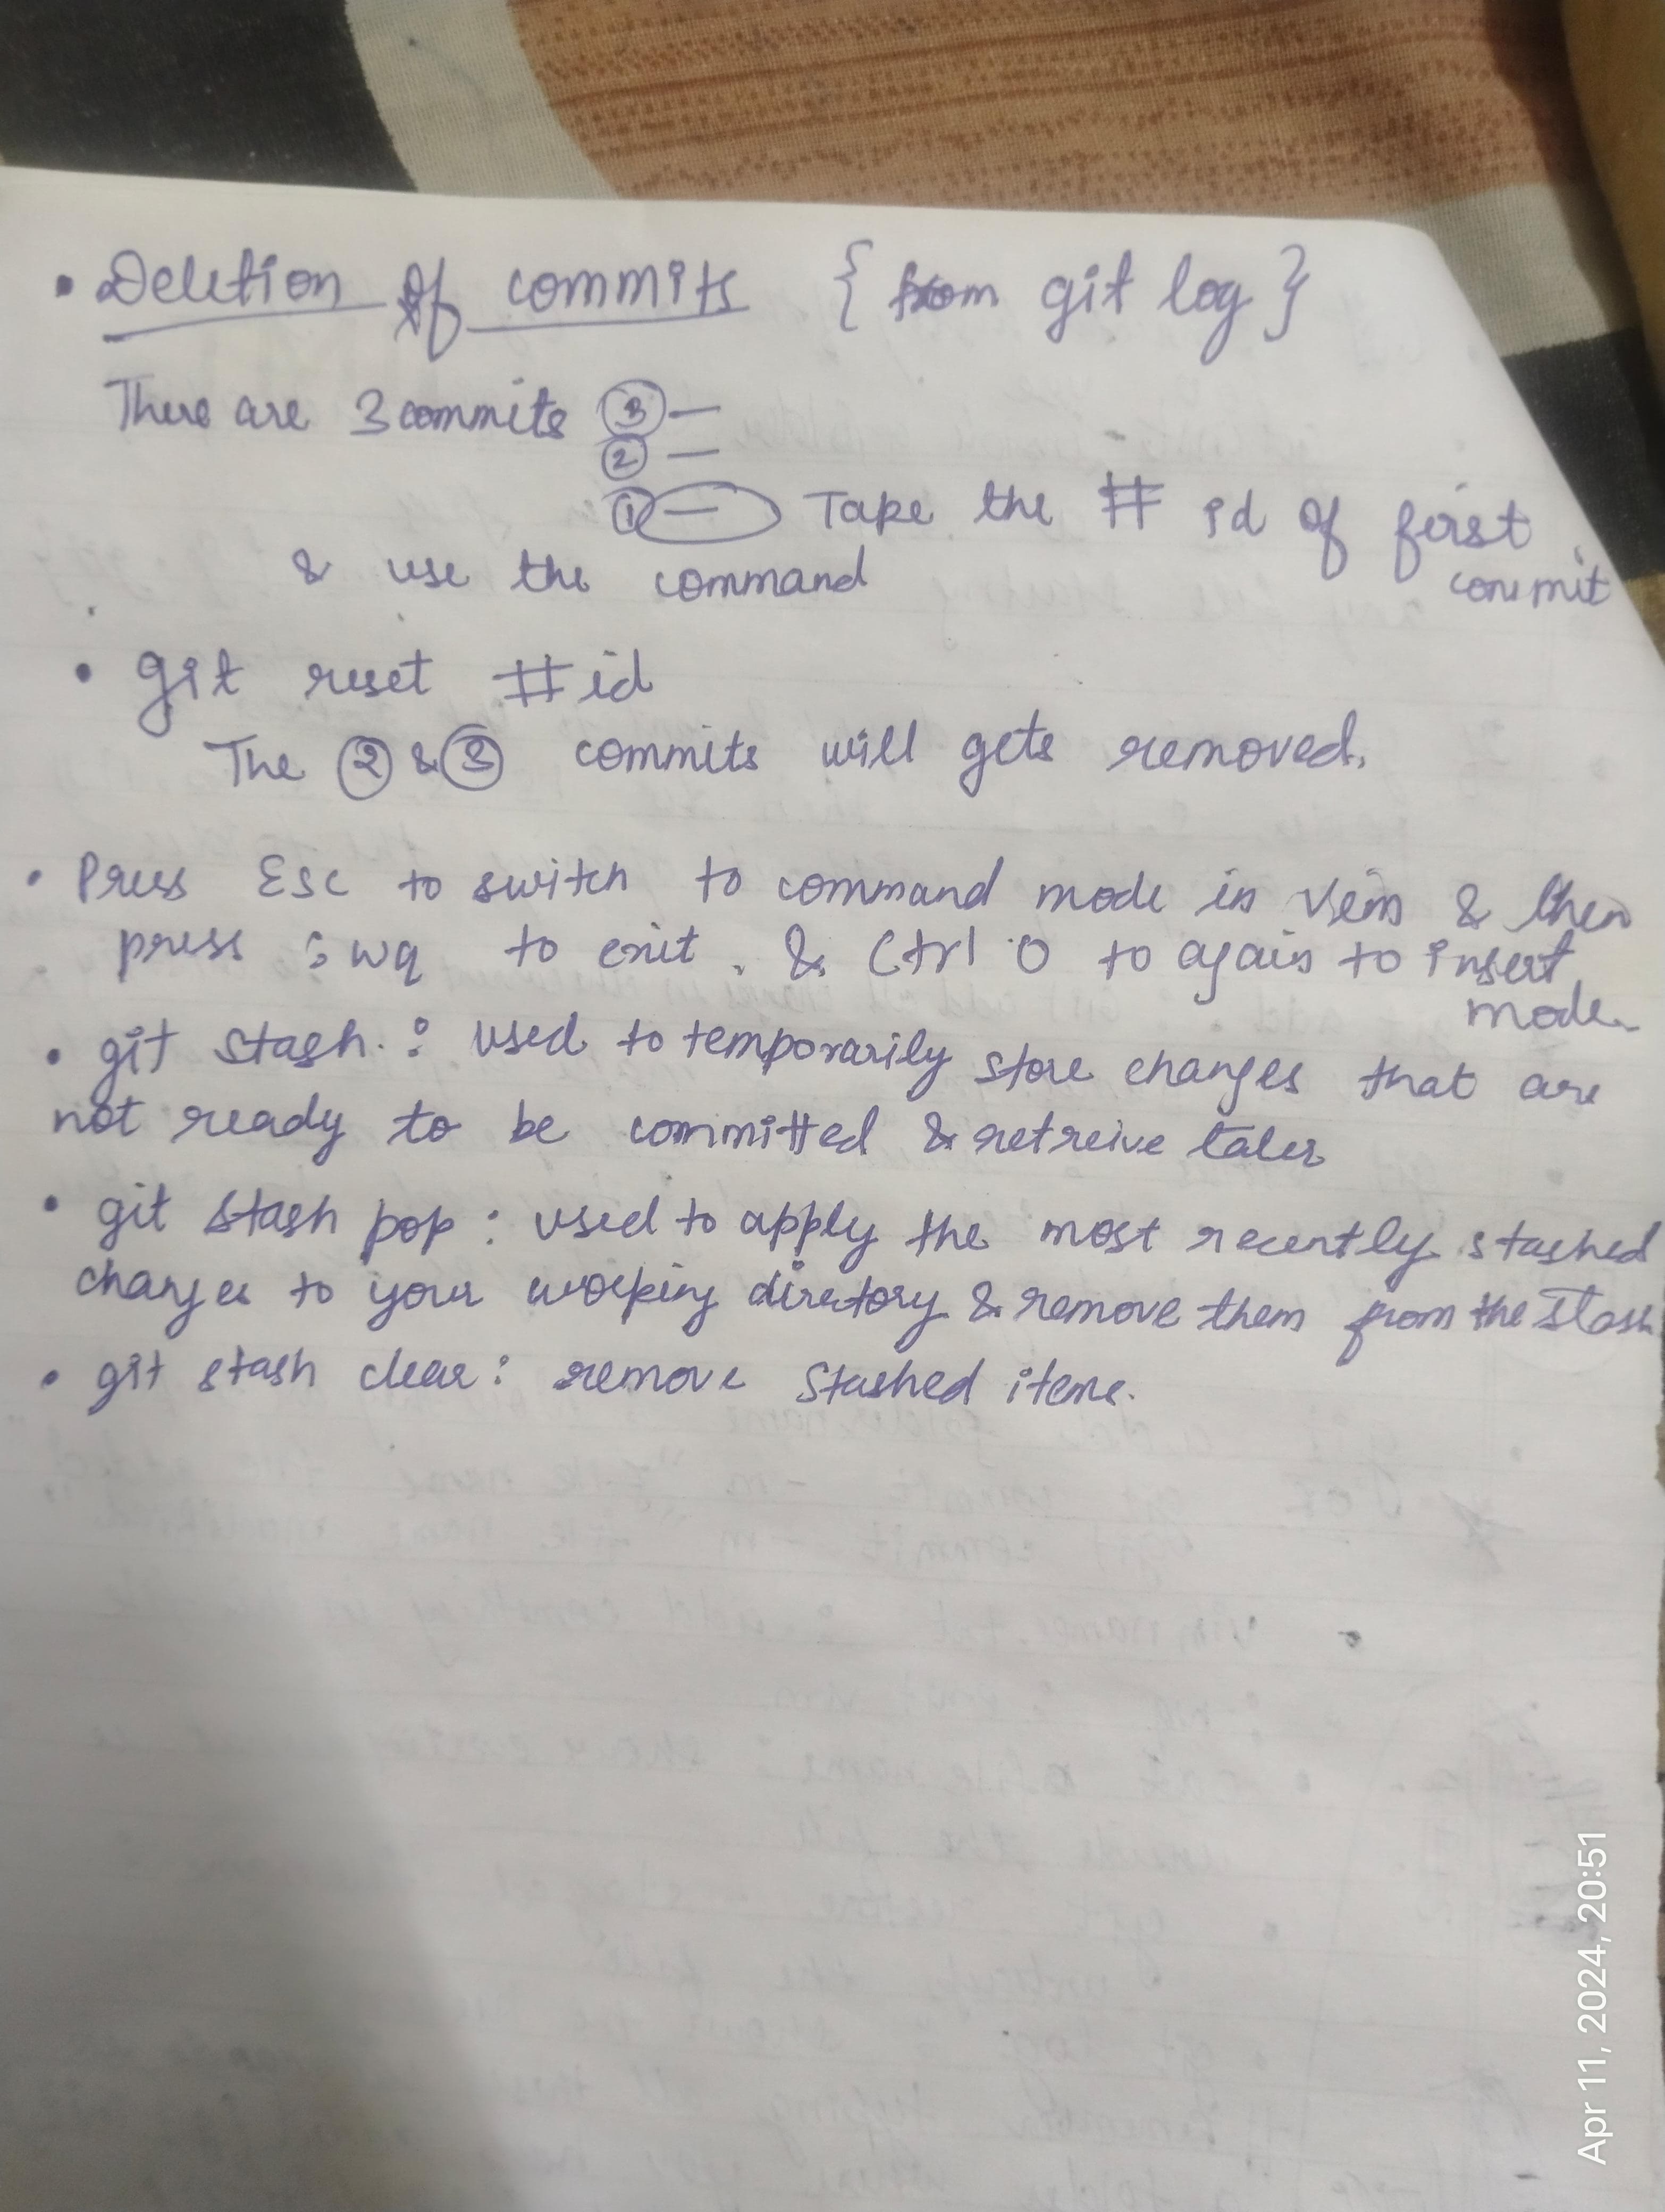 • Deletion of commits { from git log }
There are 3 commits ③ —
② —
① — Take the # id of first
commit
& use the command
• git reset #id
The ② & ③ commits will gets removed.
• Press Esc to switch to command mode in Vim & then
press :wq to exit. & Ctrl O to again to insert
mode
• git stash : used to temporarily store changes that are
not ready to be committed & retreive later
• git stash pop : used to apply the most recently stashed
changes to your working directory & remove them from the stash
• git stash clear : remove stashed items.
Apr 11, 2024, 20:51